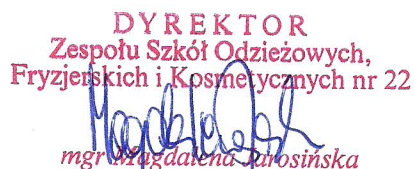 DYREKTOR
Zespołu Szkół Odzieżowych,
Fryzjerskich i Kosmetycznych nr 22
mgr Magdalena Jarosińska